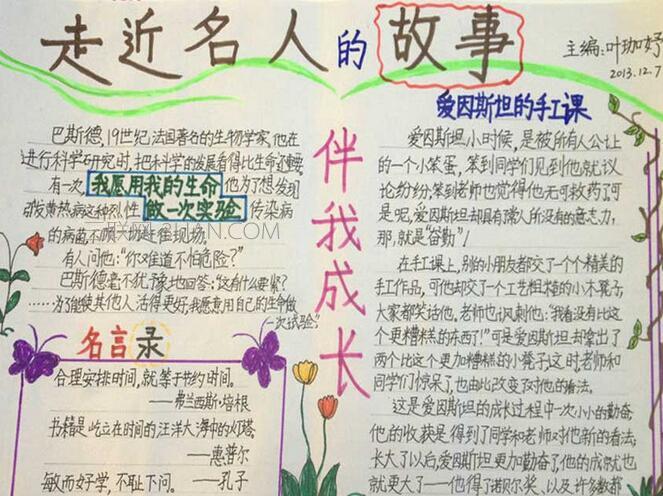 走近名人的故事
主编:叶珈妤
2013.12.7
巴斯德,19世纪法国著名的生物学家,他在
进行科学研究时,把科学的发展看得比生命还重要。
有一次,我愿用我的生命他为了想发现
黄热病这种烈性做一次实验传染病
的病菌不顾一切赶往现场。
有人问他:“你难道不怕危险?”
巴斯德毫不犹豫地回答:“这有什么要紧?
……为了能使其他人活得更好,我愿意用自己的生命做
一次试验。”
名言录
合理安排时间,就等于节约时间。
——弗兰西斯·培根
书籍是屹立在时间的汪洋大海中的灯塔。
——惠普尔
敏而好学,不耻下问。
——孔子
伴我成长
爱因斯坦的手工课
爱因斯坦小时候,是被所有人公认
的一个小笨蛋,笨到同学们见到他就议
论纷纷,笨到老师也觉得他无可救药了,可
是呢,爱因斯坦却具有常人所没有的意志力,
那,就是“奋勤”!
在手工课上,别的小朋友都交了一个个精美的
手工作品,可他却交了一个工艺粗糙的小木凳子,
大家都笑话他。老师也讽刺他:“我看没有比这
个更糟糕的东西了!”可是爱因斯坦却拿出了
两个比这个更加糟糕的小凳子,这时,老师和
同学们惊呆了,也由此改变了对他的看法。
这是爱因斯坦的成长过程中一次小小的勤奋,
他的收获是得到了同学和老师对他新的看法;
长大了以后,爱因斯坦更加勤奋了,他的成就也
就更大了——他得了诺贝尔奖,以及许多数都